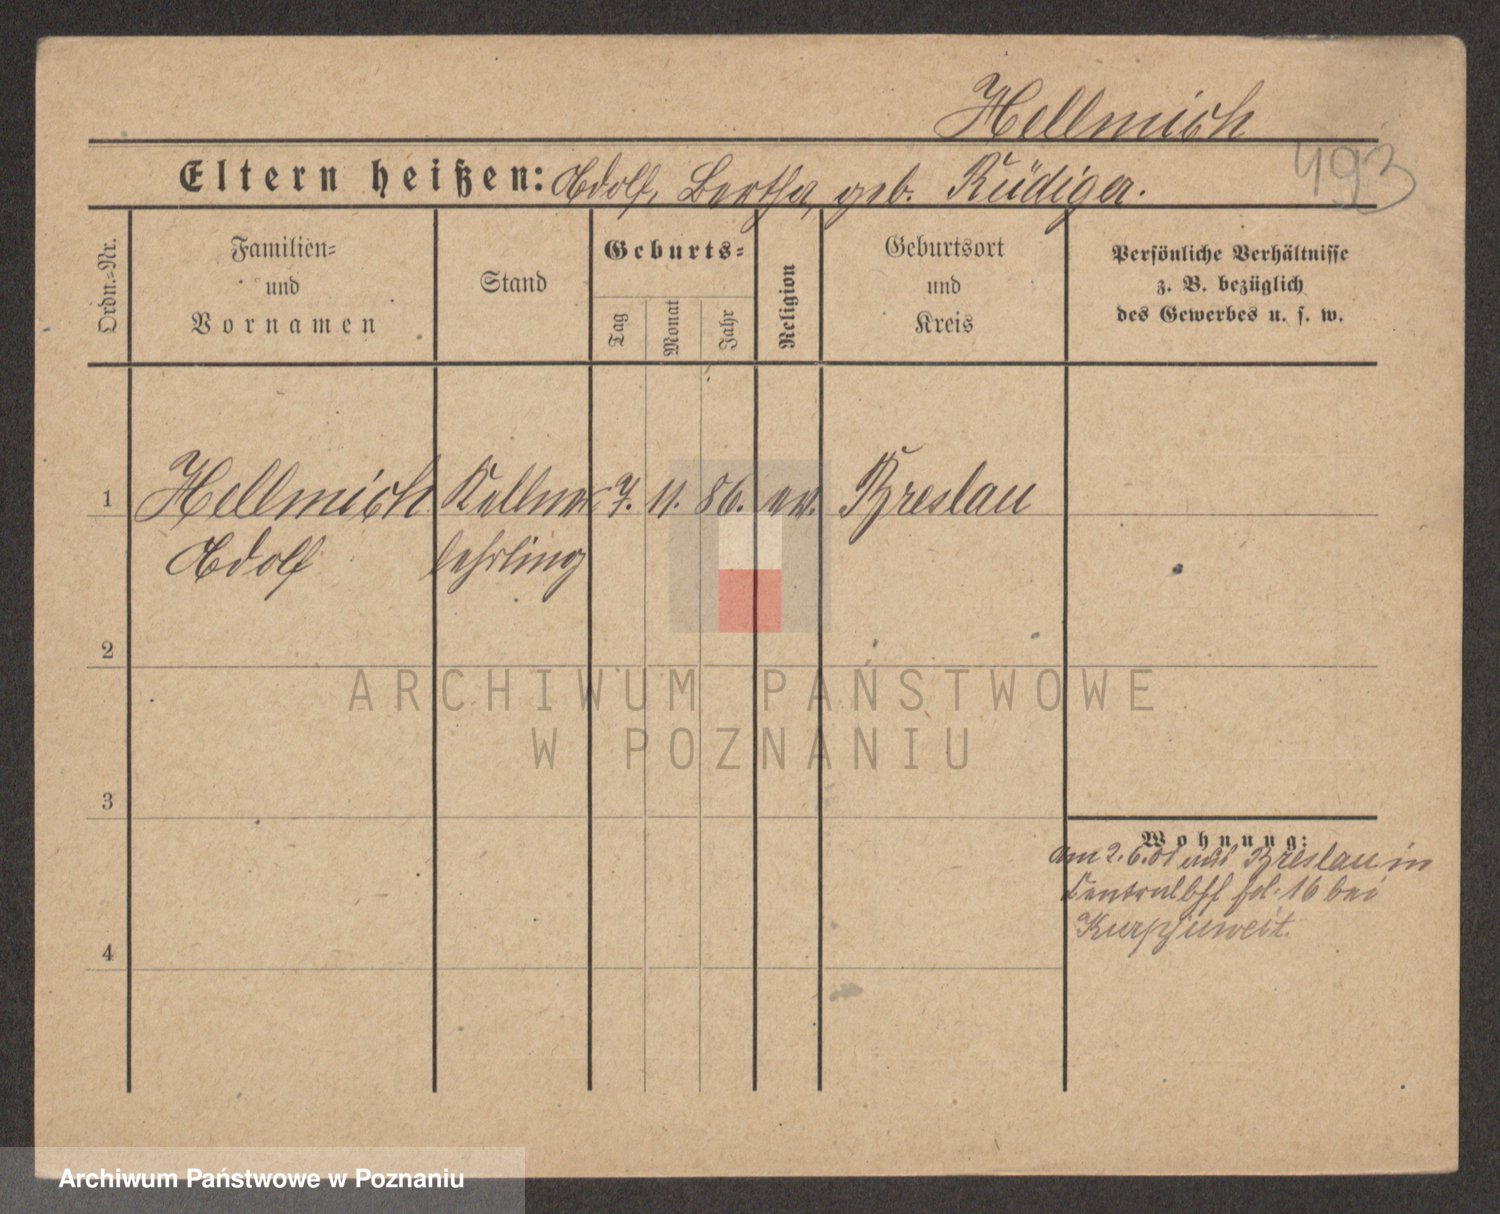 Hellmich
493
Eltern heißen: Adolf, Bertha, geb. Rüdiger.
Ordn.=Nr.
Familien=
und
Vornamen
Stand
Geburts=
Tag
Monat
Jahr
Religion
Geburtsort
und
Kreis
Persönliche Verhältnisse
z. B. bezüglich
des Gewerbes u. s. w.
1 Hellmich Kellner 7. 11. 86. ev. Breslau
Adolf lehrling
2
3
4
Wohnung:
am 2. 6. 01 aus Breslau in
Centralbhf 16 bei
Kurpjuweit.
ARCHIWUM PAŃSTWOWE
W POZNANIU
Archiwum Państwowe w Poznaniu